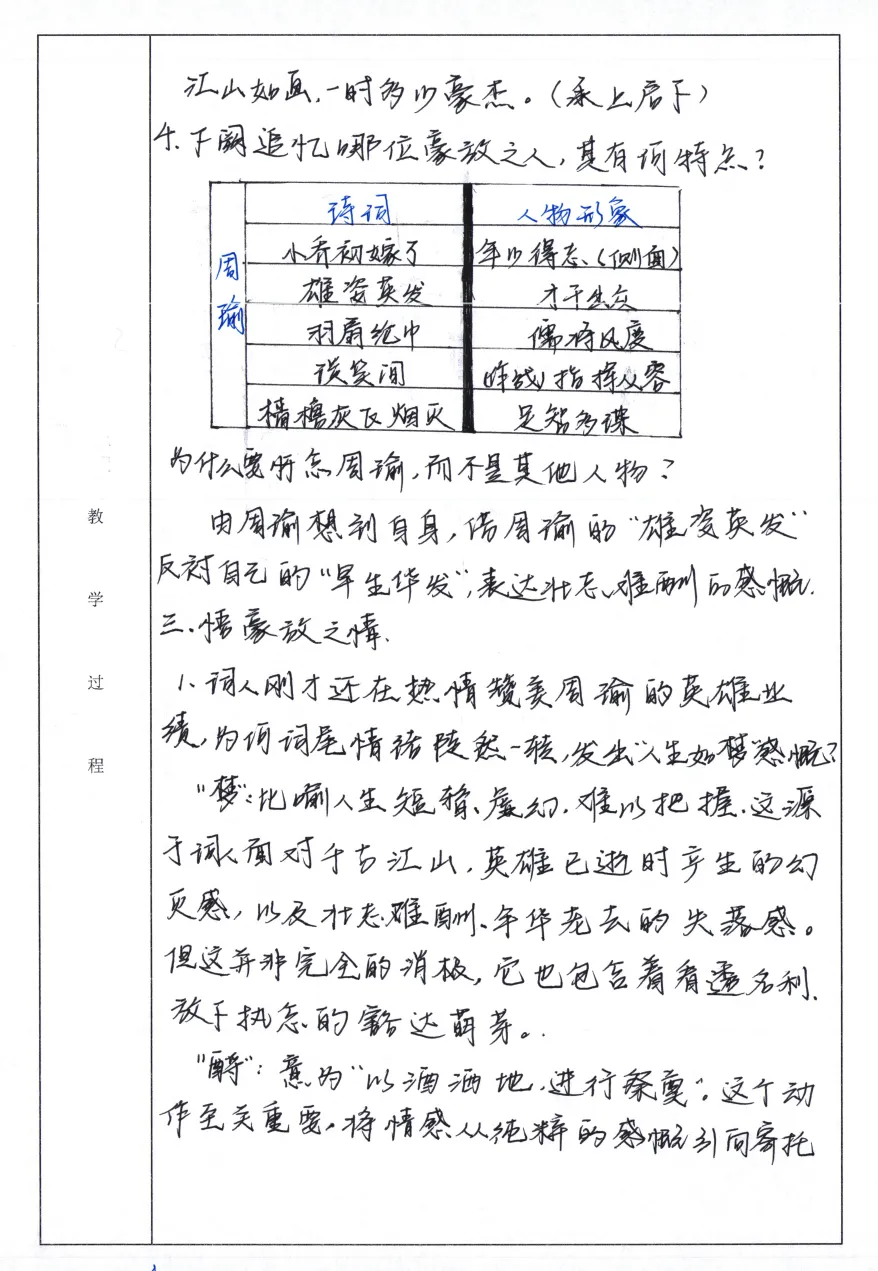 江山如画,一时多少豪杰。(承上启下)
4.下阕追忆哪位豪放之人,其有何特点?
周瑜
诗词 人物形象
小乔初嫁了 年少得志(侧面)
雄姿英发 才干出众
羽扇纶巾 儒将风度
谈笑间 作战指挥从容
樯橹灰飞烟灭 足智多谋
为什么要怀念周瑜,而不是其他人物?
由周瑜想到自身,借周瑜的"雄姿英发"
反衬自己的"早生华发",表达壮志难酬的感慨.
三.悟豪放之情.
1.词人刚才还在热情赞美周瑜的英雄业
绩,为何词尾情绪陡然一转,发出"人生如梦"感慨?
"梦":比喻人生短暂、虚幻.难以把握.这源
于词人面对千古江山,英雄已逝时产生的幻
灭感,以及壮志难酬、年华老去的失落感。
但这并非完全的消极,它也包含着看透名利、
放下执念的豁达萌芽。
"酹":意为"以酒洒地,进行祭奠"。这个动
作至关重要。将情感从纯粹的感慨引向寄托
教
学
过
程